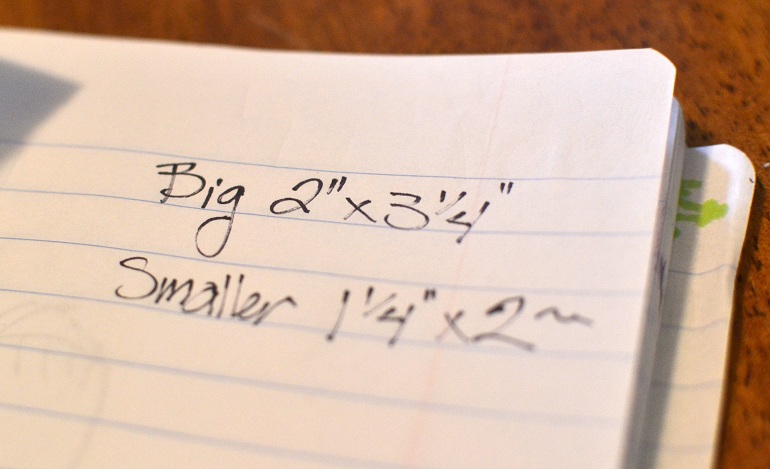 Big 2"x3 1/4"
Smaller 1 1/4"x2~